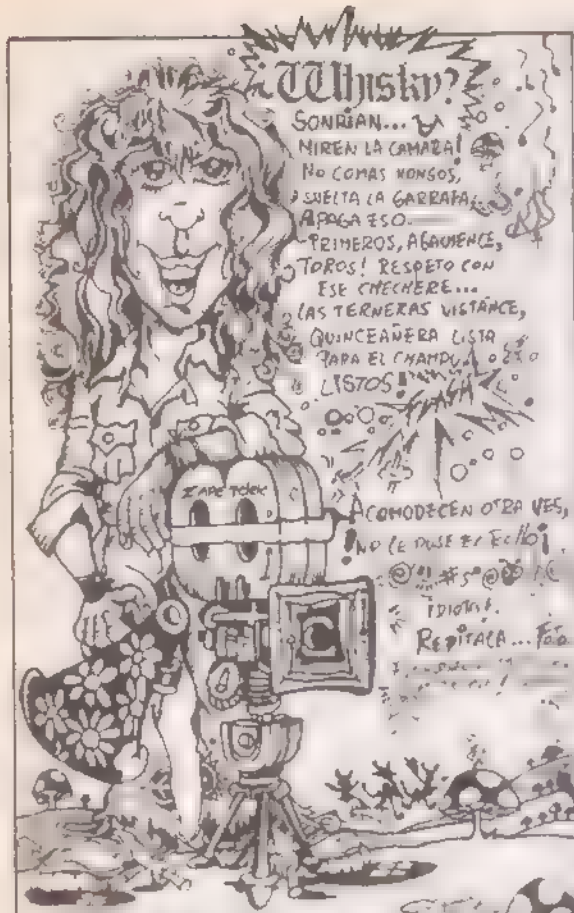 ¿Whisky?
SONRIAN...
MIREN LA CAMARA!
NO COMAS HONGOS,
SUELTA LA GARRAFA,
APAGA ESO.
PRIMEROS, AGAUENCE,
TOROS! RESPETO CON
ESE CHECHERE...
LAS TERNERAS VISTANCE,
QUINCEAÑERA LISTA
PARA EL CHAMPU
LISTOS!
ACOMODECEN OTRA VES,
NO LE PUSE EL
IDIOTAS.
REPITALA... FOTO